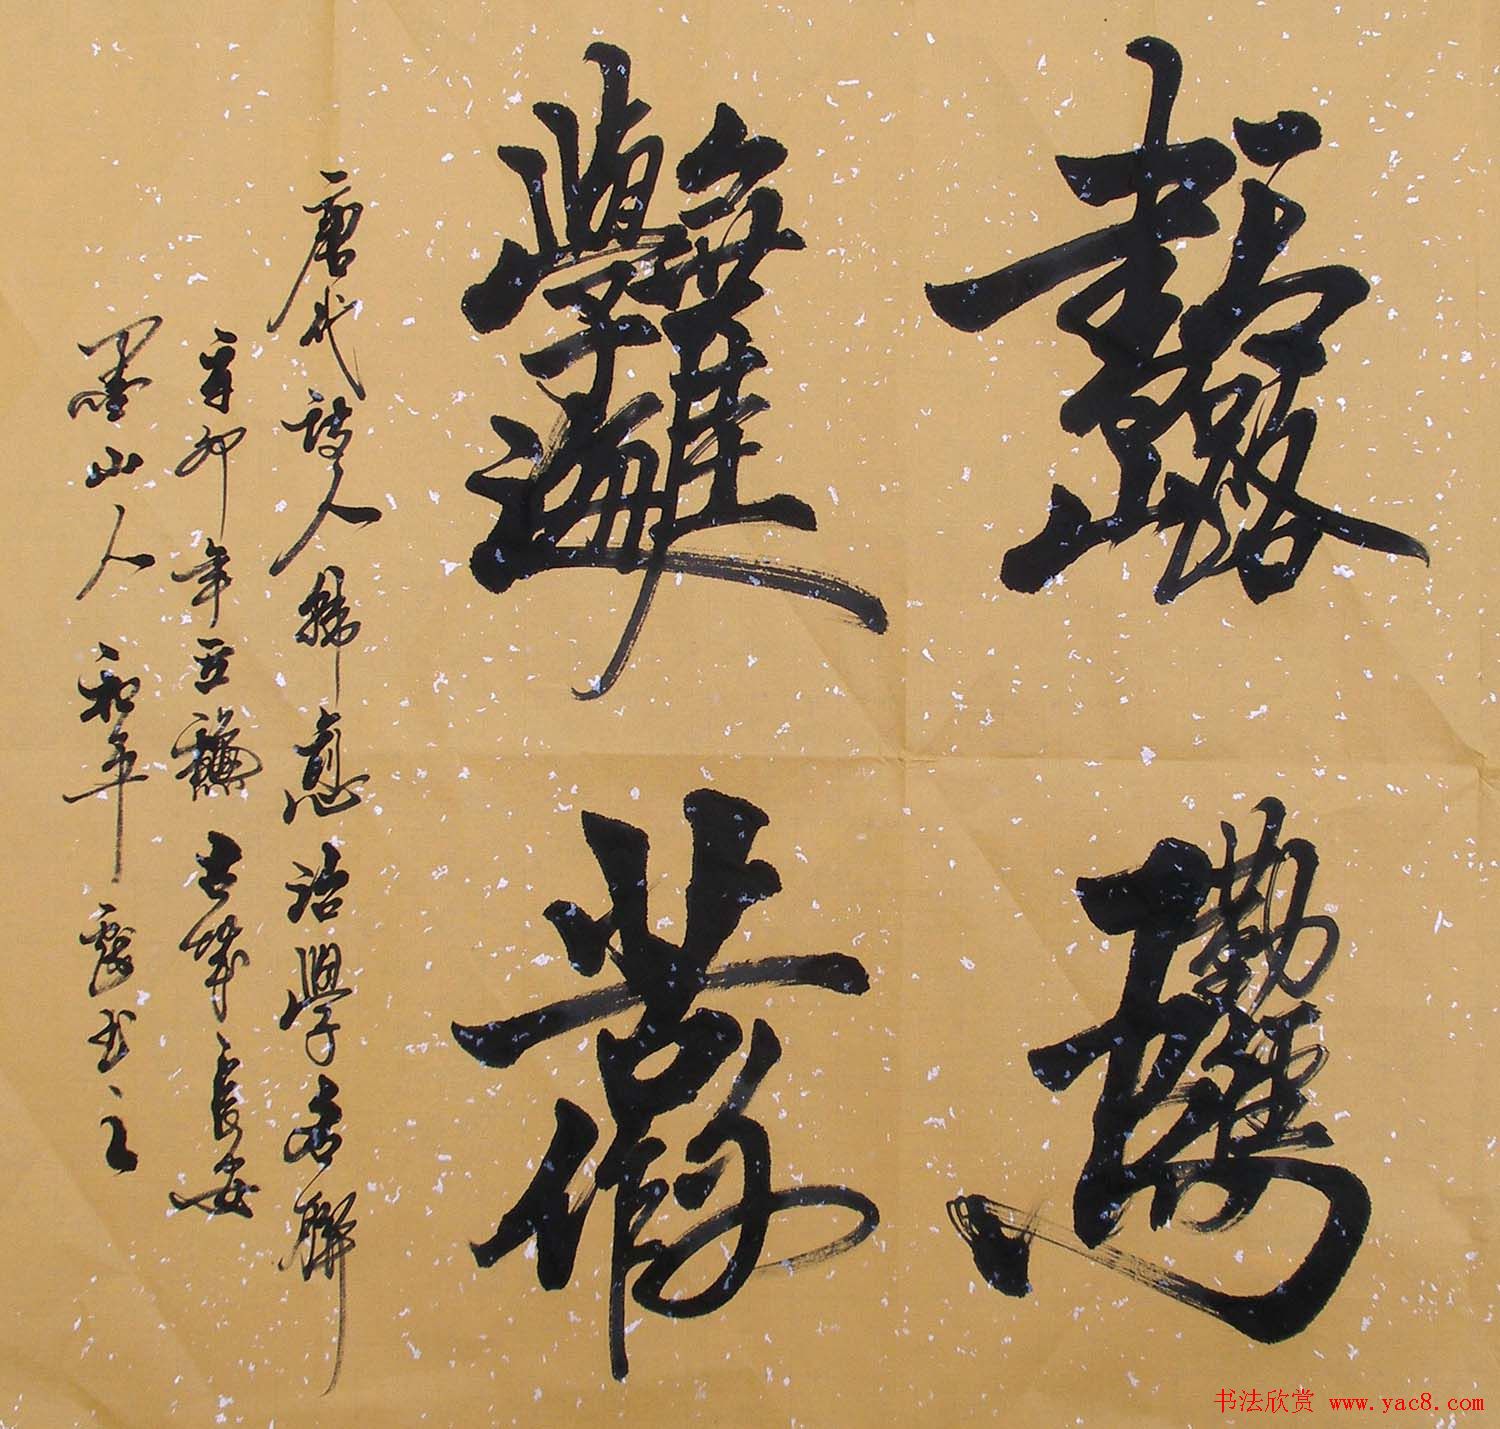 書山有路
勤為徑
學海無涯
苦作舟
唐代詩人韓愈治學名聯
辛卯年 古城長安
墨山人和平 書之
书法欣赏 www.yac8.com